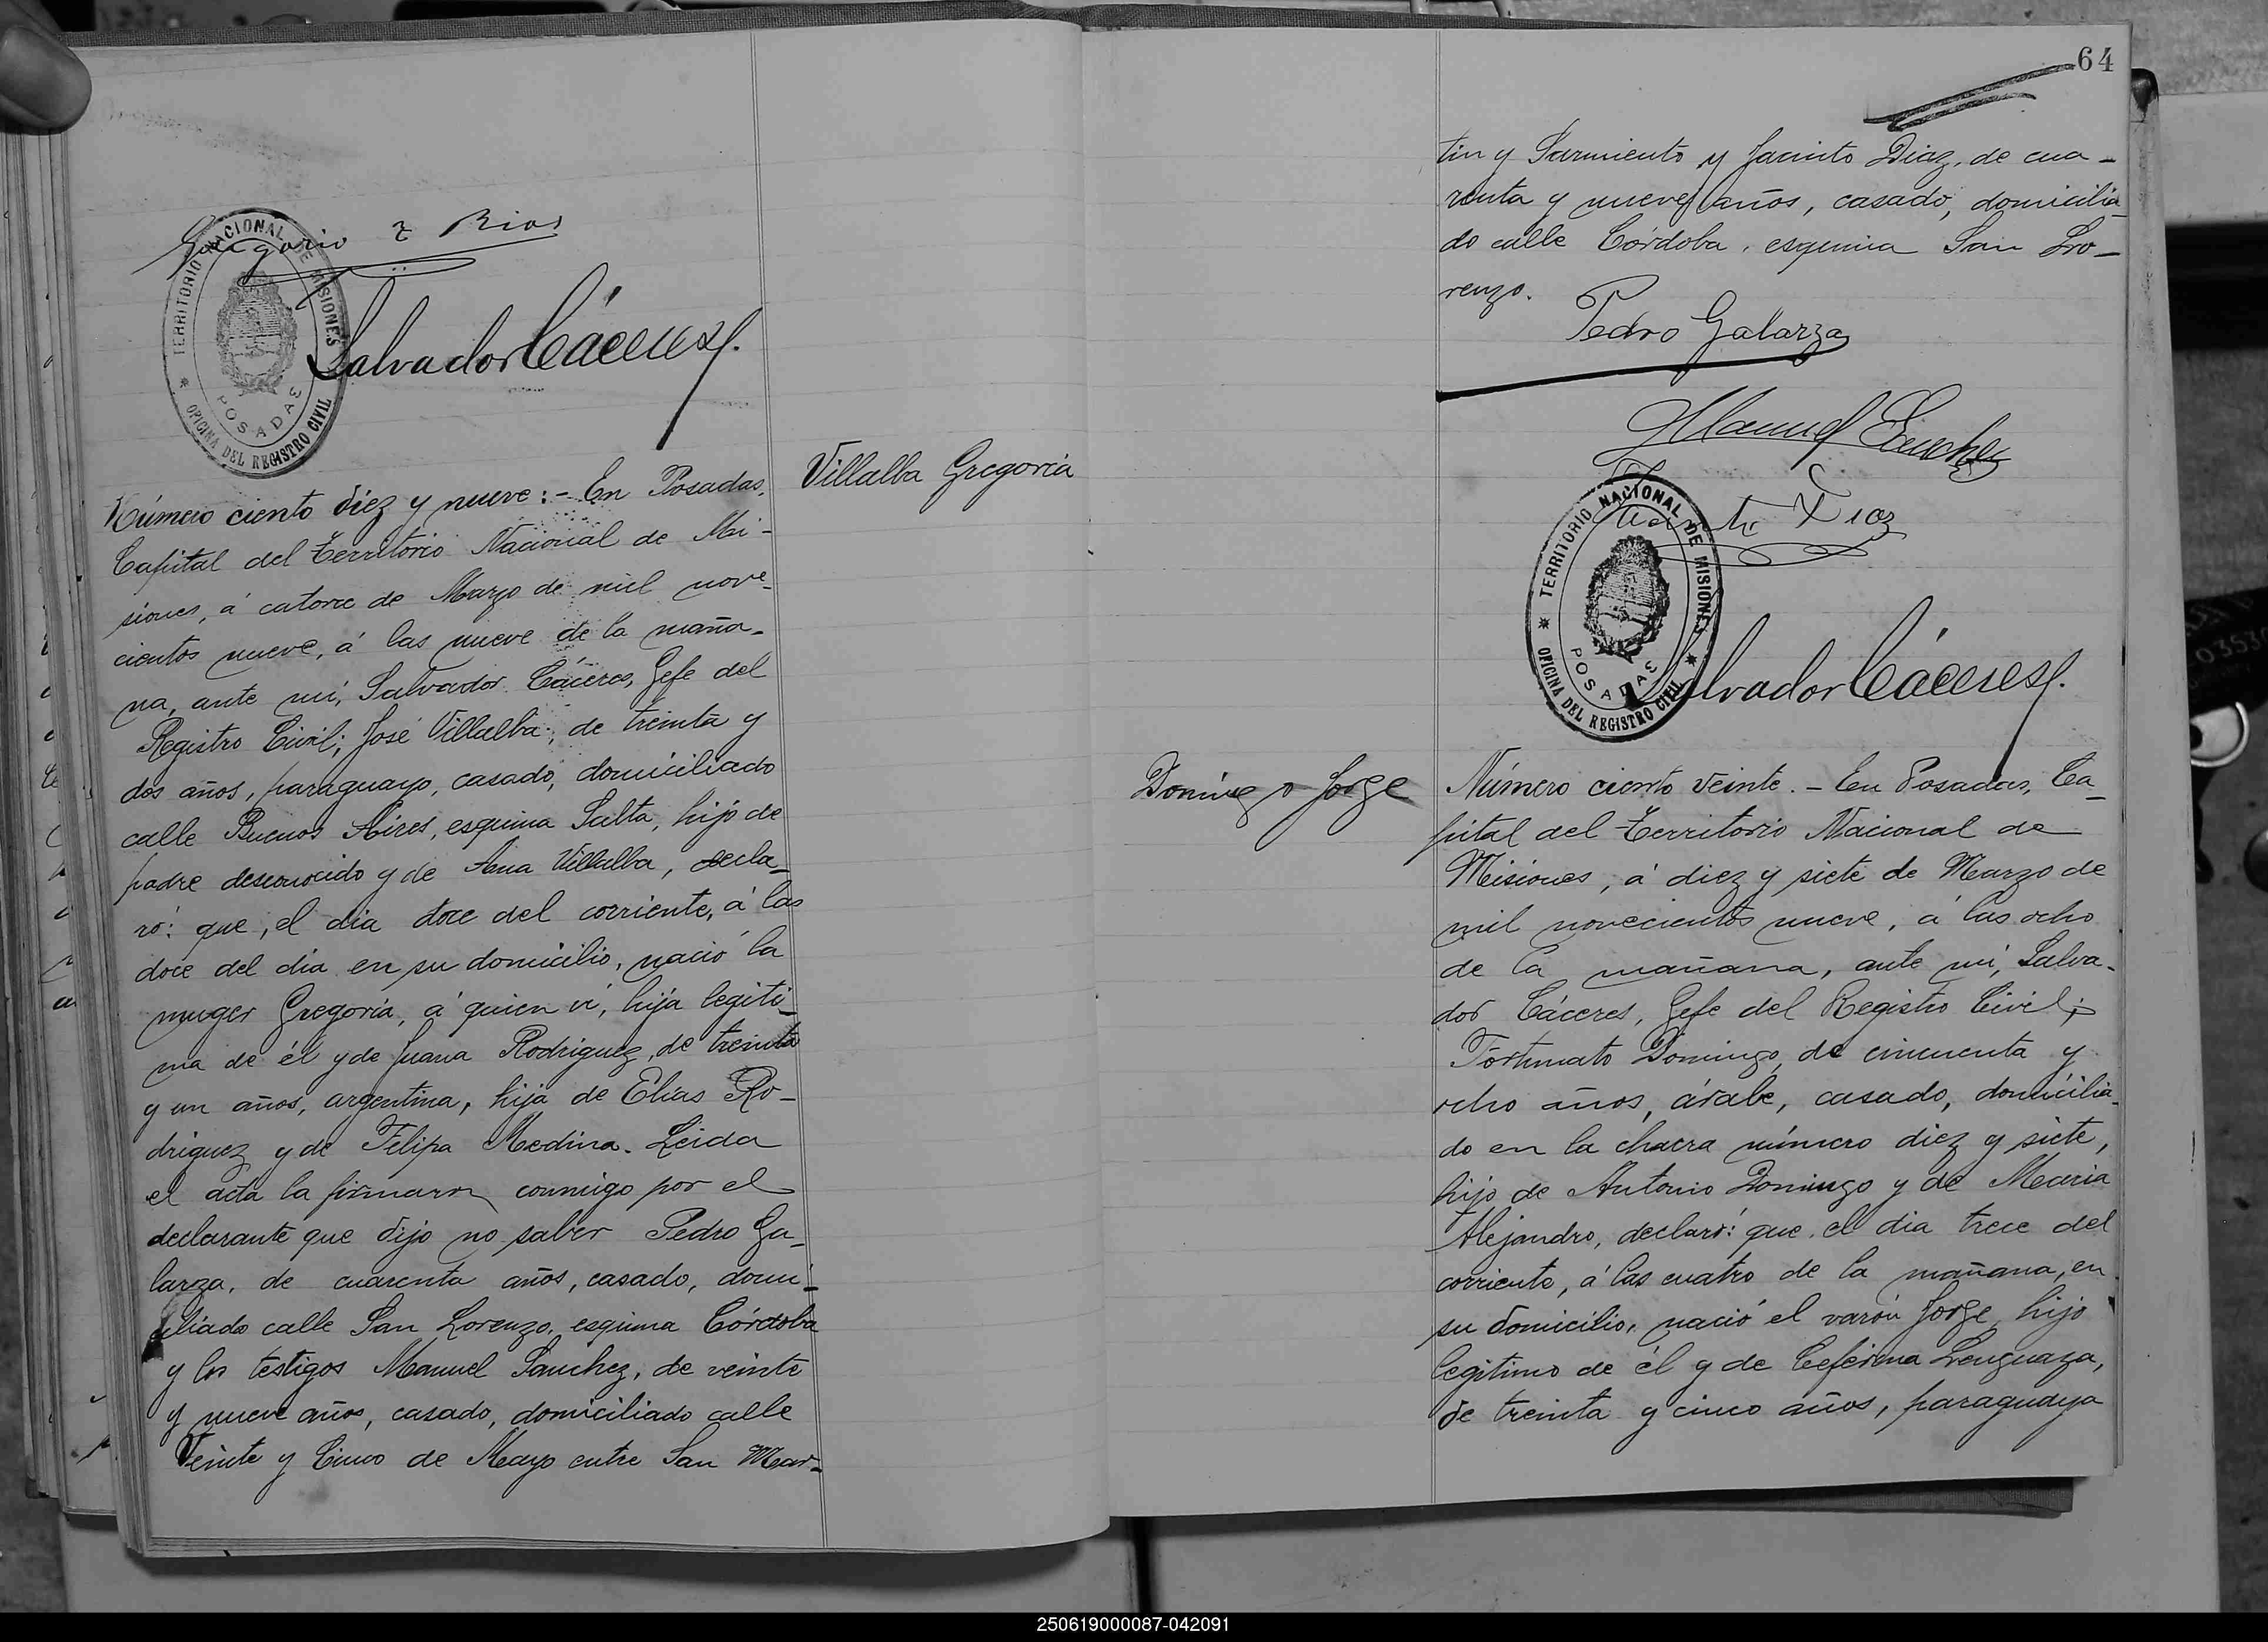 Gregorio Z Rios
TERRITORIO NACIONAL DE MISIONES
POSADAS
OFICINA DEL REGISTRO CIVIL
Salvador Cáceres
Villalba Gregoria
Número ciento diez y nueve:- En Posadas,
Capital del Territorio Nacional de Mi-
siones, á catorce de Marzo de mil nove-
cientos nueve, á las nueve de la maña-
na, ante mí, Salvador Cáceres, Gefe del
Registro Civil; José Villalba, de treinta y
dos años, paraguayo, casado, domiciliado
calle Buenos Aires, esquina Salta, hijo de
padre desconocido y de Ana Villalba, decla-
ró: que, el dia doce del corriente, á las
doce del dia en su domicilio, nació la
muger Gregoria, á quien ví, hija legiti-
ma de él y de Juana Rodriguez, de treinta
y un años, argentina, hija de Elias Ro-
driguez y de Felipa Medina. Leida
el acta la firmaron conmigo por el
declarante que dijo no saber Pedro Ga-
larza, de cuarenta años, casado, domi-
ciliado calle San Lorenzo, esquina Córdoba
y los testigos Manuel Sanchez, de veinte
y nueve años, casado, domiciliado calle
Veinte y Cinco de Mayo entre San Mar-
64
tin y Sarmiento y Jacinto Diaz, de cua-
renta y nueve años, casado, domicilia-
do calle Córdoba, esquina San Lo-
renzo.
Pedro Galarza
Manuel Sanchez
Diaz
TERRITORIO NACIONAL DE MISIONES
POSADAS
OFICINA DEL REGISTRO CIVIL
Salvador Cáceres
Domingo Jorge
Número ciento veinte.- En Posadas, Ca-
pital del Territorio Nacional de
Misiones, á diez y siete de Marzo de
mil novecientos nueve, á las ocho
de la mañana, ante mí, Salva-
dor Cáceres, Gefe del Registro Civil;
Fortunato Domingo, de cincuenta y
ocho años, árabe, casado, domicilia-
do en la chacra número diez y siete,
hijo de Antonio Domingo y de Maria
Alejandro, declaró: que, el dia trece del
corriente, á las cuatro de la mañana, en
su domicilio, nació el varón Jorge, hijo
legitimo de él y de Ceferina Lenguaza,
de treinta y cinco años, paraguaya
250619000087-042091